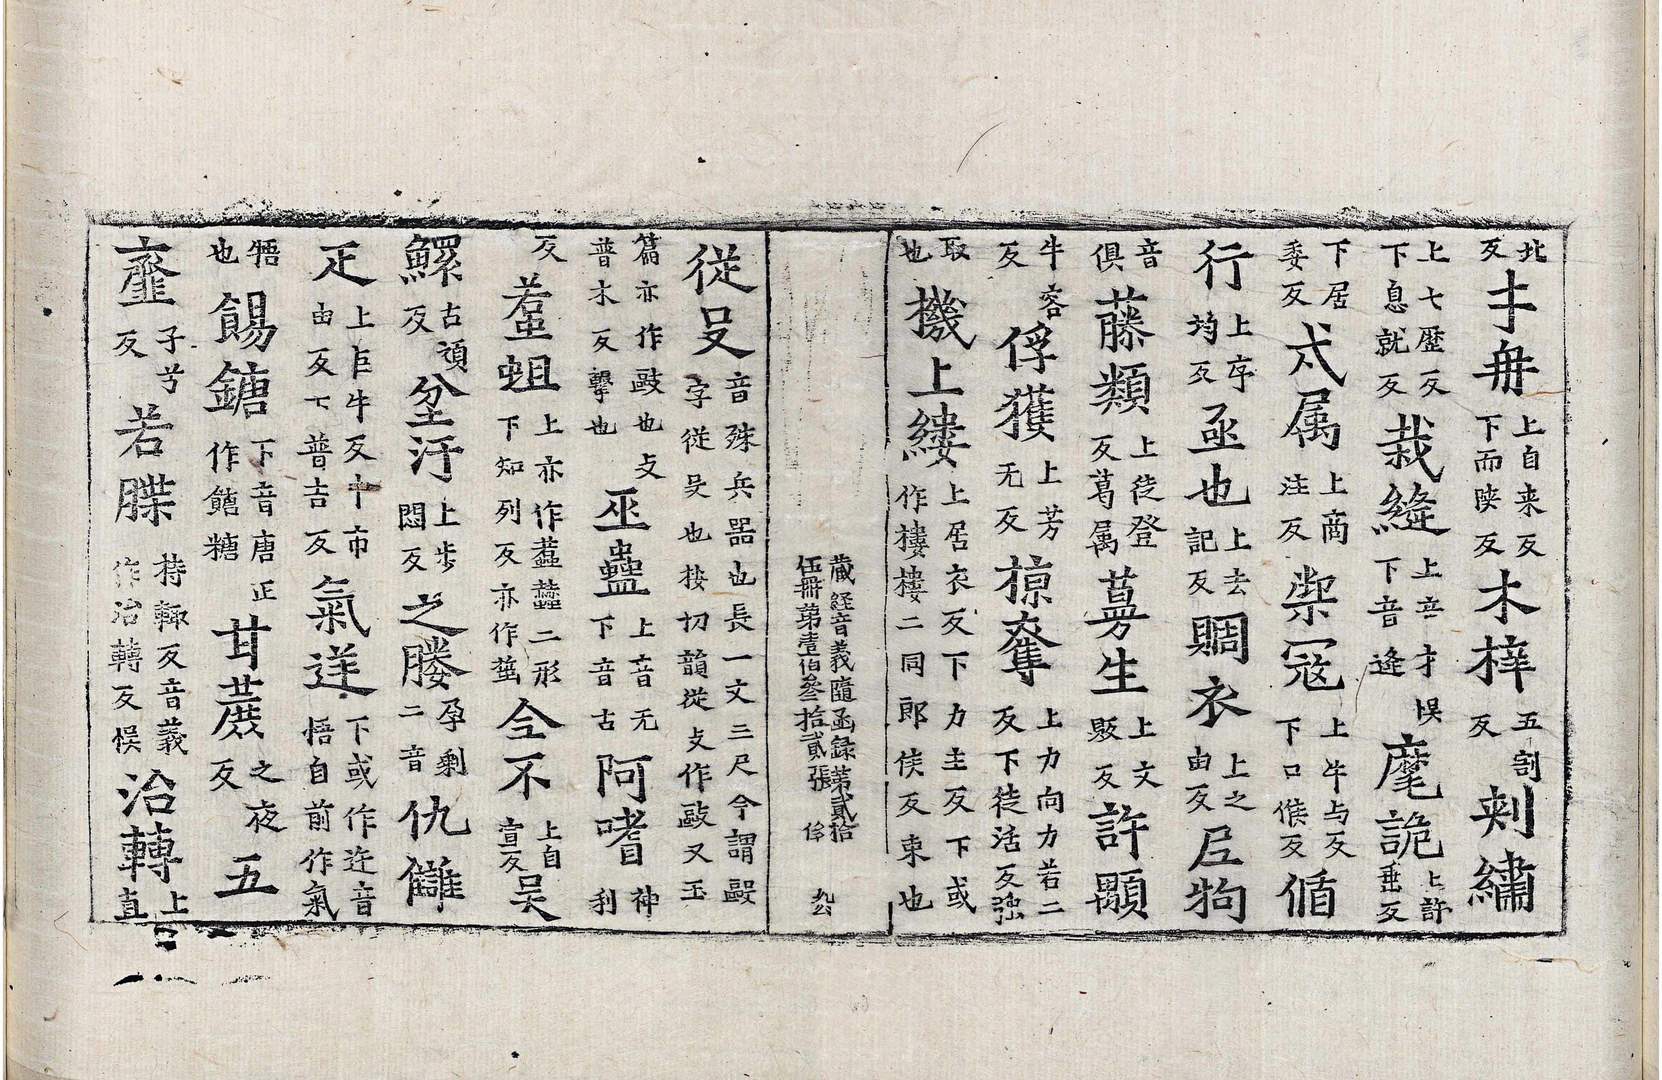 北反 才毋 上自来反下而陕反 木梓 五割反 刾繡
上七歷反下息就反 栽縫 上音才悮下音逢 麾詭 上許垂反
下居委反 弍属 上商注反 禦冦 上牛与反下口候反 循
行 上序均反 亟也 上去記反 賙衣 上之由反 𡰥物
音俱 藤類 上徒登反葛属 蒭生 上文 販反 許顯
牛容反 俘獲 上芳无反 掠奪 上力向力若二反下徒活反強
取也 機上縷 上居衣反下力主反下或作樓樓二同郎侯反束也
藏経音義隨函録第貳拾
伍冊第壹伯叁拾貳張
從殳 音殊兵噐也長一丈三尺今謂毆字従殳也按切韻從攴作敺又玉
篇亦作敺也攴普木反擊也 巫蠱 上音无下音古 阿嗜 神利
反 蠚蛆 上亦作䘍蠚二形下知列反亦作蜇 仝不 上自宣反 吴
鯀 古頑反 坌汙 上步悶反 之媵 孕剩二音 仇讎
疋 上巨牛反十市由反七普吉反 氣逆 下或作迕音悟自前作氣
牾也 餳鎕 下音唐正作餹糖 甘蔗 之夜反 五
虀 子兮反 若牒 持輙反音義作治轉反悮 治轉 上直